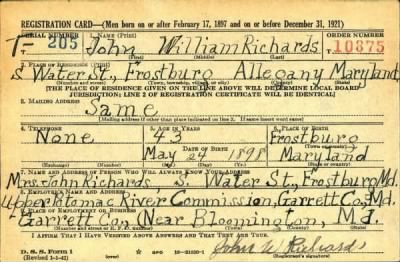 REGISTRATION CARD—(Men born on or after February 17, 1897 and on or before December 31, 1921)
SERIAL NUMBER 1. NAME (Print) ORDER NUMBER
T- 205 John William Richards 10875
(First) (Middle) (Last)
2. PLACE OF RESIDENCE (Print)
S Water St., Frostburg Allegany Maryland
(Number and street) (Town, township, village, or city) (County) (State)
[THE PLACE OF RESIDENCE GIVEN ON THE LINE ABOVE WILL DETERMINE LOCAL BOARD
JURISDICTION; LINE 2 OF REGISTRATION CERTIFICATE WILL BE IDENTICAL]
3. MAILING ADDRESS
Same
[Mailing address if other than place indicated on line 2. If same insert word same]
4. TELEPHONE 5. AGE IN YEARS 6. PLACE OF BIRTH
None 43 Frostburg
DATE OF BIRTH (Town or county)
May 24 1898 Maryland
(Exchange) (Number) (Mo.) (Day) (Yr.) (State or country)
7. NAME AND ADDRESS OF PERSON WHO WILL ALWAYS KNOW YOUR ADDRESS
Mrs. John Richards, S. Water St., Frostburg Md.
8. EMPLOYER'S NAME AND ADDRESS
Upper Potomac River Commission, Garrett Co., Md.
9. PLACE OF EMPLOYMENT OR BUSINESS
Garrett Co., (Near Bloomington, Md.
(Number and street or R. F. D. number) (Town) (County) (State)
I AFFIRM THAT I HAVE VERIFIED ABOVE ANSWERS AND THAT THEY ARE TRUE.
D. S. S. Form 1 John W Richards
(Revised 1-1-42) GPO (Registrant's signature)